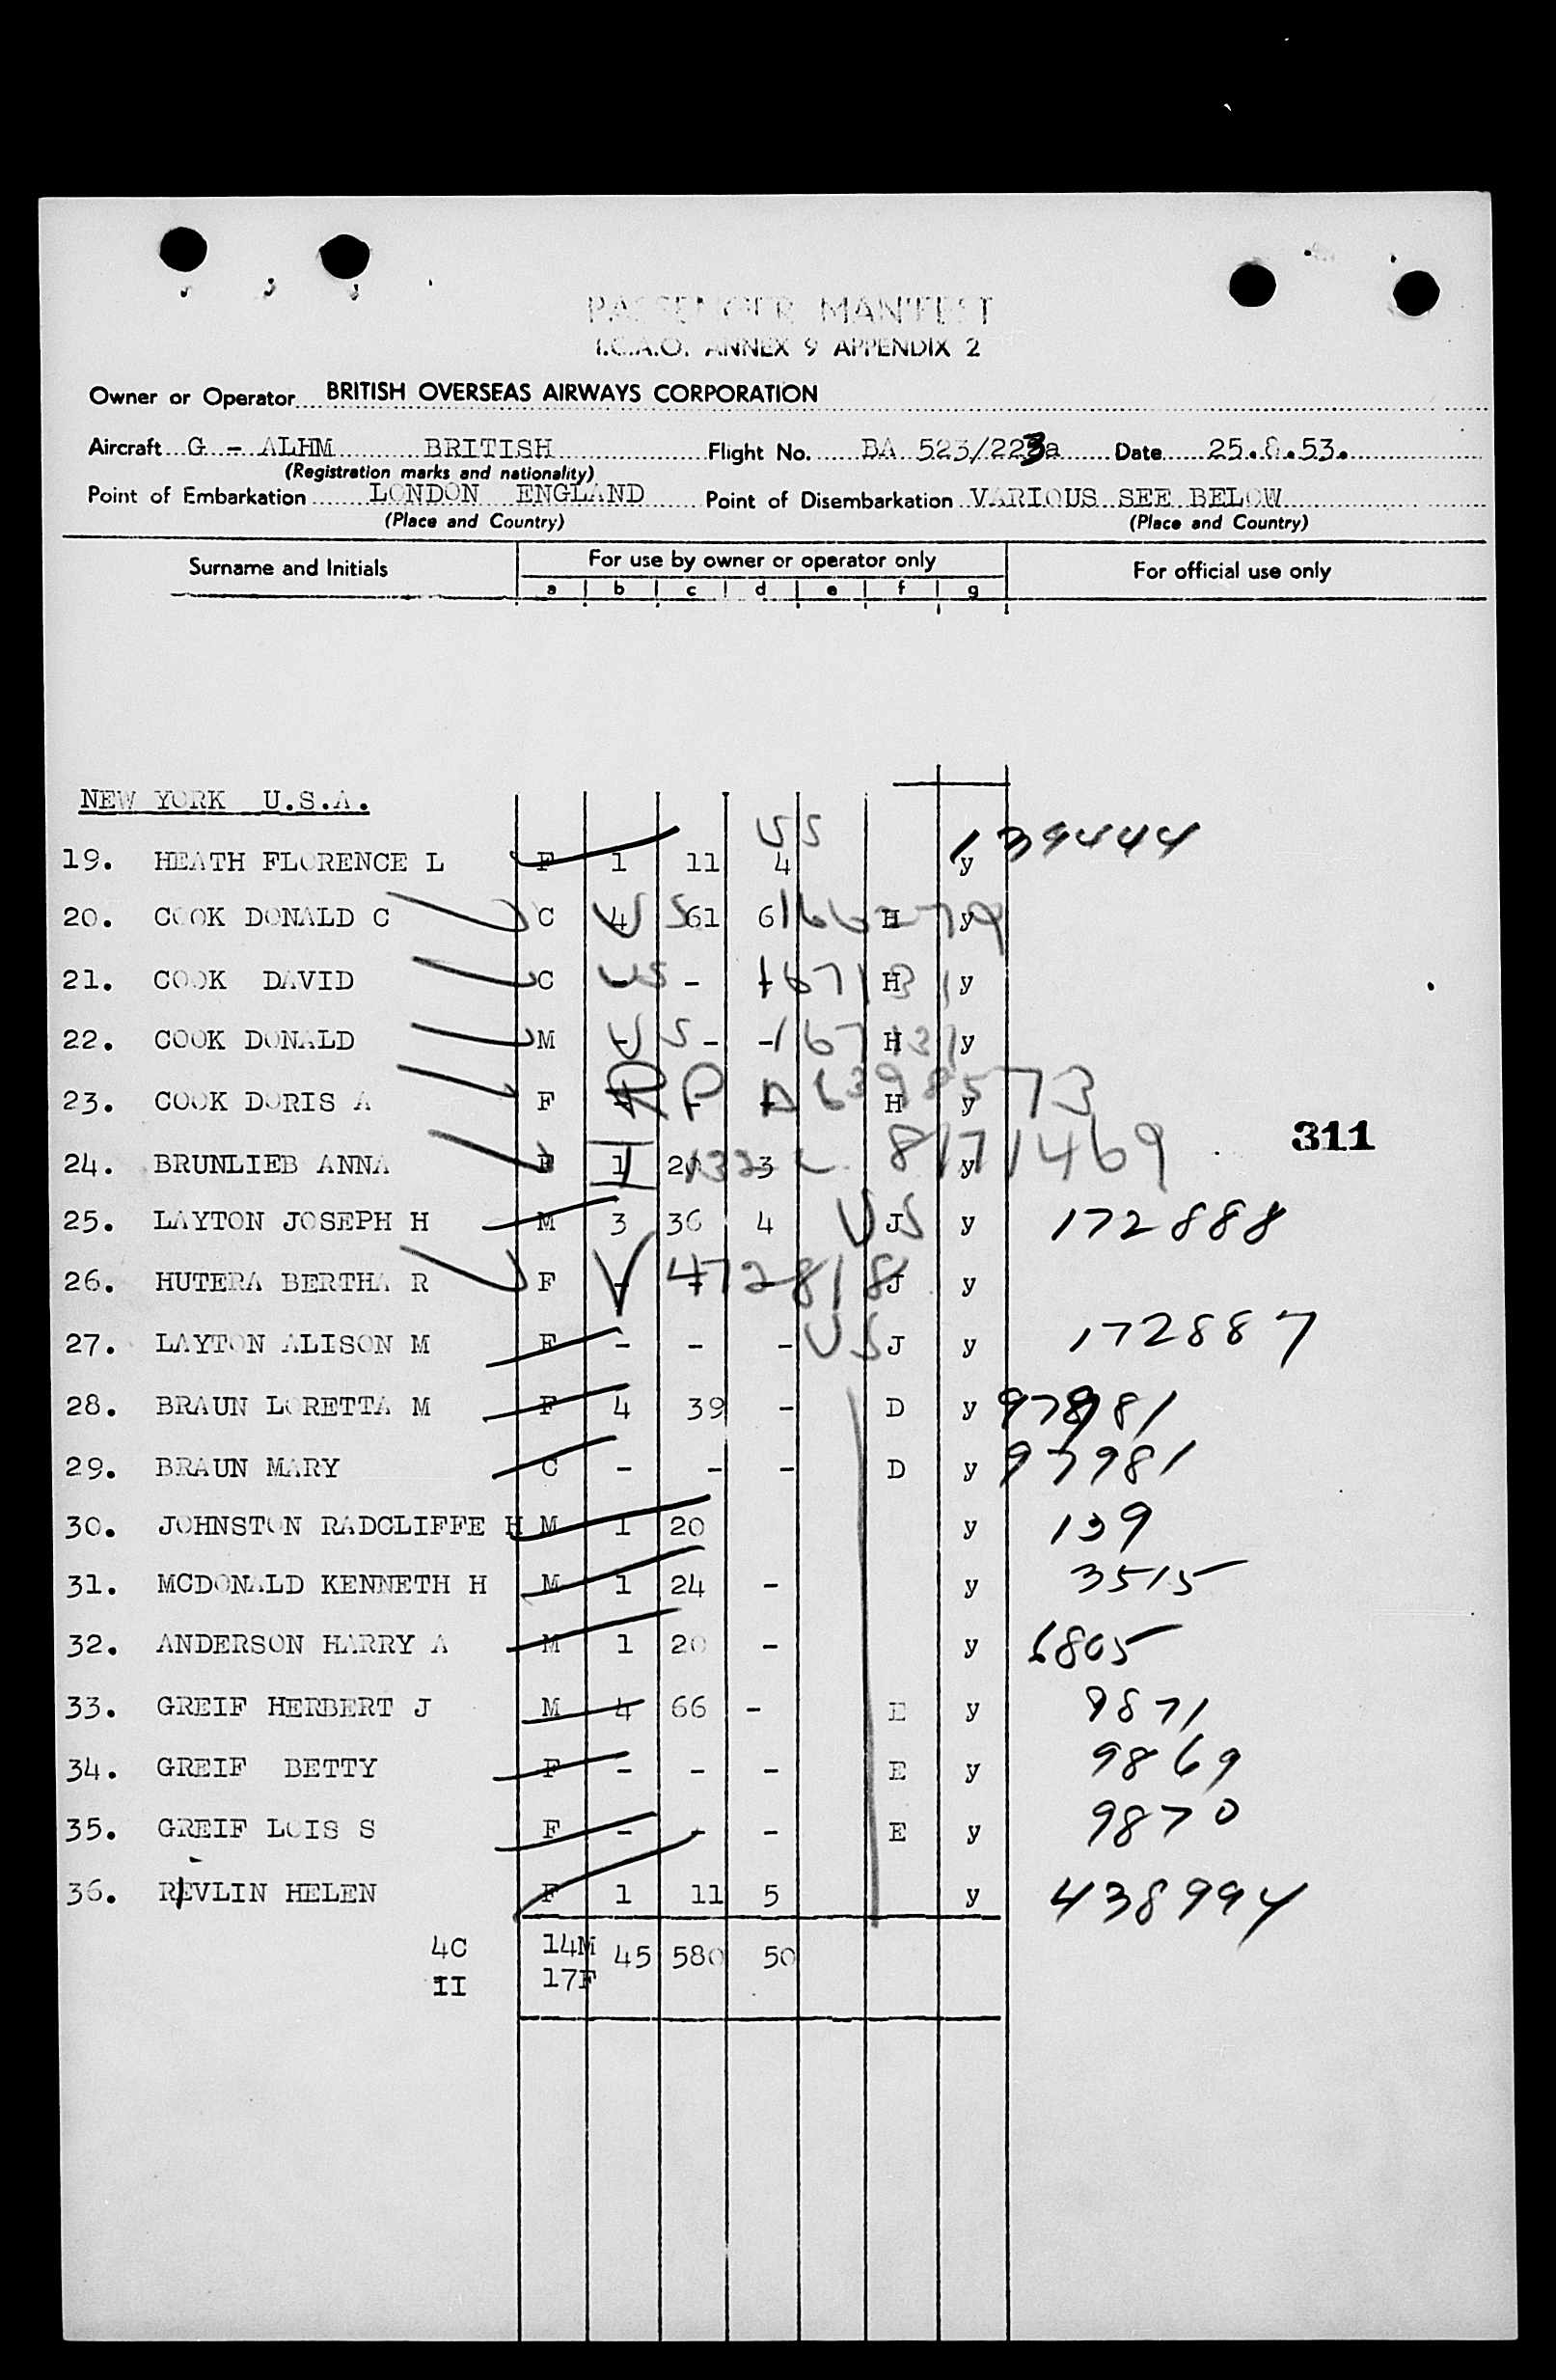 PASSENGER MANIFEST
I.C.A.O. ANNEX 9 APPENDIX 2
Owner or Operator BRITISH OVERSEAS AIRWAYS CORPORATION
Aircraft G - ALHM BRITISH Flight No. BA 523/223a Date 25.8.53.
(Registration marks and nationality)
Point of Embarkation LONDON ENGLAND Point of Disembarkation VARIOUS SEE BELOW
(Place and Country) (Place and Country)
Surname and Initials For use by owner or operator only For official use only
a b c d e f g
NEW YORK U.S.A.
US
19. HEATH FLORENCE L F 1 11 4 y 139444
20. COOK DONALD C C 4 US 61 6 166279 H y
21. COOK DAVID C - US - - 167131 H y
22. COOK DONALD M - US - - 167131 H y
23. COOK DORIS A F - RP - - A6398573 H y
311
24. BRUNLIEB ANNA F 1 I 3 8171469 y
25. LAYTON JOSEPH H M 3 36 4 US J y 172888
26. HUTERA BERTHA R F - V - - 472818 J y
27. LAYTON ALISON M F - - - US J y 172887
28. BRAUN LORETTA M F 4 39 - D y 97981
29. BRAUN MARY C - - - D y 97981
30. JOHNSTON RADCLIFFE H M 1 20 y 139
31. MCDONALD KENNETH H M 1 24 - y 3515
32. ANDERSON HARRY A M 1 20 - y 6805
33. GREIF HERBERT J M 4 66 - E y 9871
34. GREIF BETTY F - - - E y 9869
35. GREIF LOIS S F - - - E y 9870
36. REVLIN HELEN F 1 11 5 y 438994
4C 14M 45 580 50
II 17F